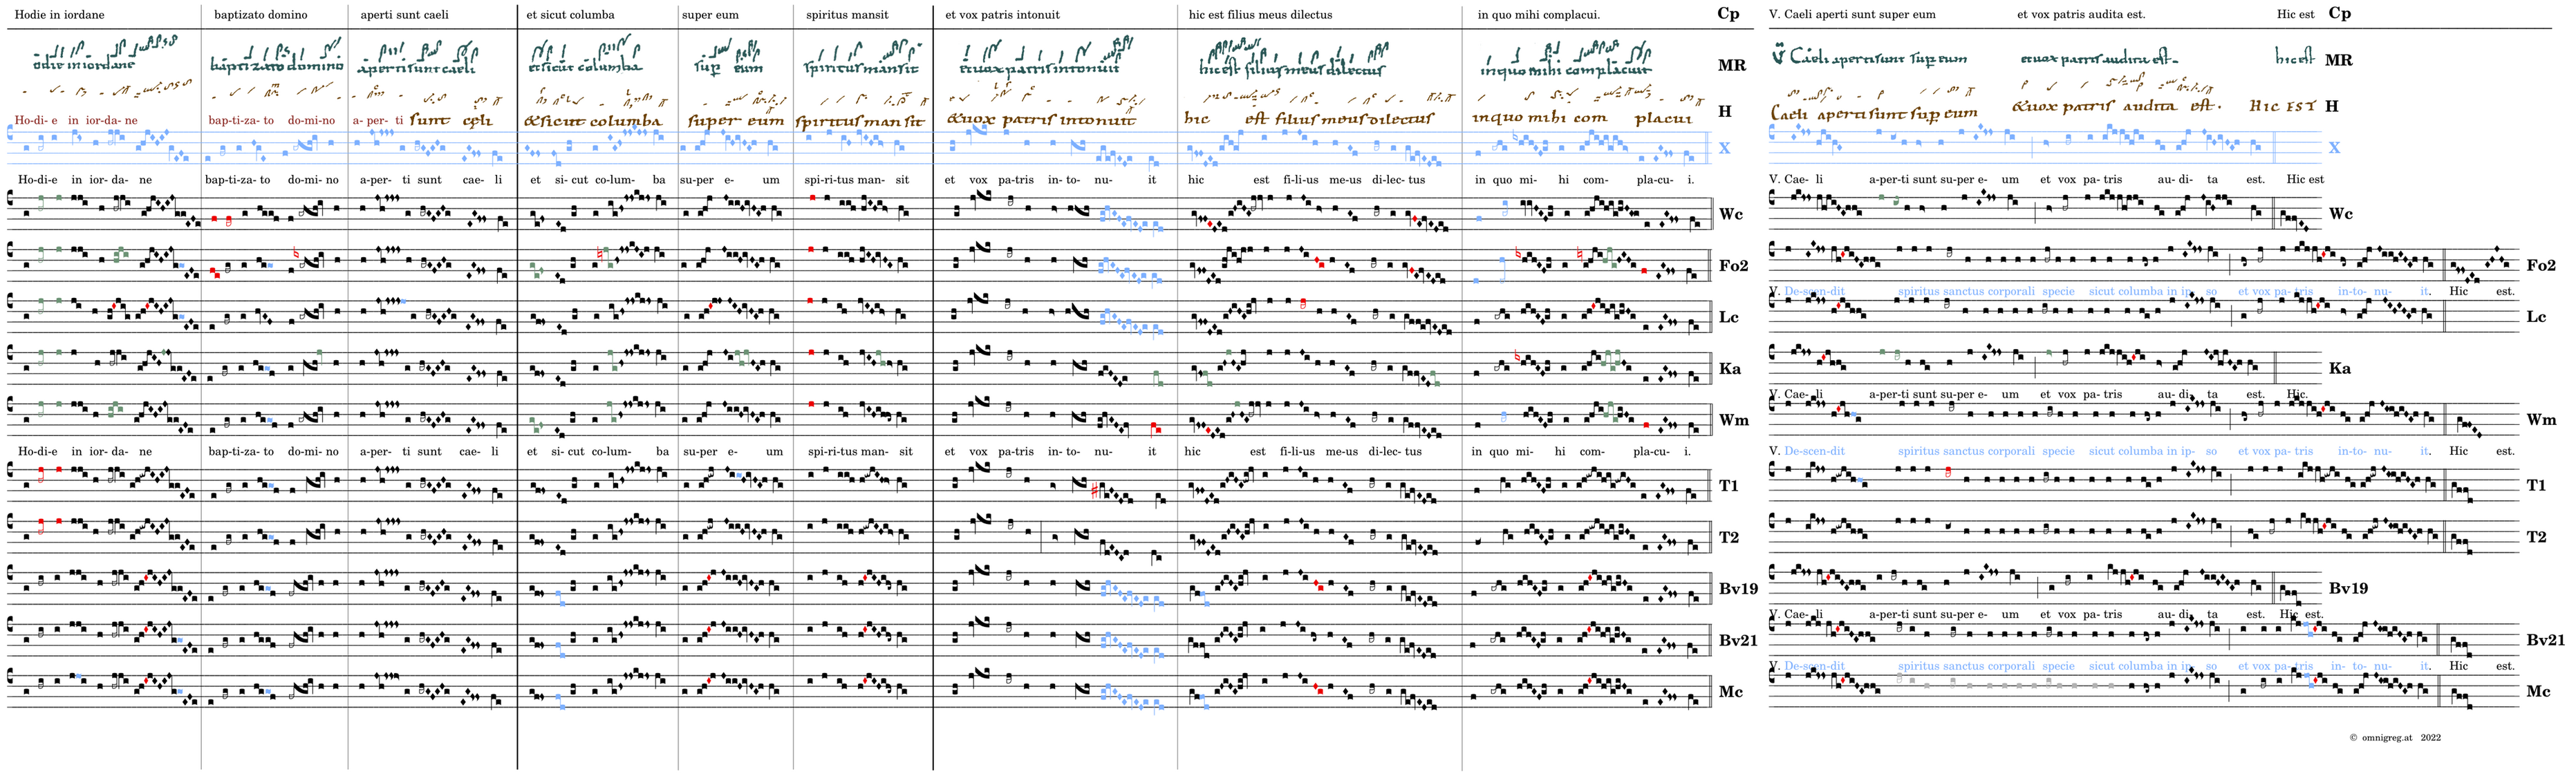 Hodie in iordane baptizato domino aperti sunt caeli et sicut columba super eum spiritus mansit et vox patris intonuit hic est filius meus dilectus in quo mihi complacui. Cp V. Caeli aperti sunt super eum et vox patris audita est. Hic est Cp
odie in iordane baptizato domino aperti sunt caeli et sicut columba sup eum spiritus mansit et vox patris intonuit hic est filius meus dilectus in quo mihi complacuit MR V Caeli aperti sunt sup eum et vox patris audita est. hic est MR
Ho-di-e in ior-da-ne bap-ti-za-to do-mi-no a-per-ti sunt celi & sicut columba super eum spiritus man sit & vox patris intonuit hic est filius meus dilectus in quo mihi com placui H Caeli aperti sunt sup eum & vox patris audita est. HIC EST H
X X
Ho-di-e in ior-da-ne bap-ti-za-to do-mi-no a-per-ti sunt cae-li et si-cut co-lum-ba su-per e-um spi-ri-tus man-sit et vox pa-tris in-to-nu-it hic est fi-li-us me-us di-lec-tus in quo mi-hi com-pla-cu-i. V. Cae-li a-per-ti sunt su-per e-um et vox pa-tris au-di-ta est. Hic est
Wc Wc
Fo2 Fo2
V. De-scen-dit spiritus sanctus corporali specie sicut columba in ip-so et vox pa-tris in-to-nu-it. Hic est.
Lc Lc
Ka Ka
V. Cae-li a-per-ti sunt su-per e-um et vox pa-tris au-di-ta est. Hic.
Wm Wm
Ho-di-e in ior-da-ne bap-ti-za-to do-mi-no a-per-ti sunt cae-li et si-cut co-lum-ba su-per e-um spi-ri-tus man-sit et vox pa-tris in-to-nu-it hic est fi-li-us me-us di-lec-tus in quo mi-hi com-pla-cu-i. V. De-scen-dit spiritus sanctus corporali specie sicut columba in ip-so et vox pa-tris in-to-nu-it. Hic est.
T1 T1
T2 T2
Bv19 Bv19
V. Cae-li a-per-ti sunt su-per e-um et vox pa-tris au-di-ta est. Hic est.
Bv21 Bv21
V. De-scen-dit spiritus sanctus corporali specie sicut columba in ip-so et vox pa-tris in-to-nu-it. Hic est.
Mc Mc
© omnigreg.at 2022